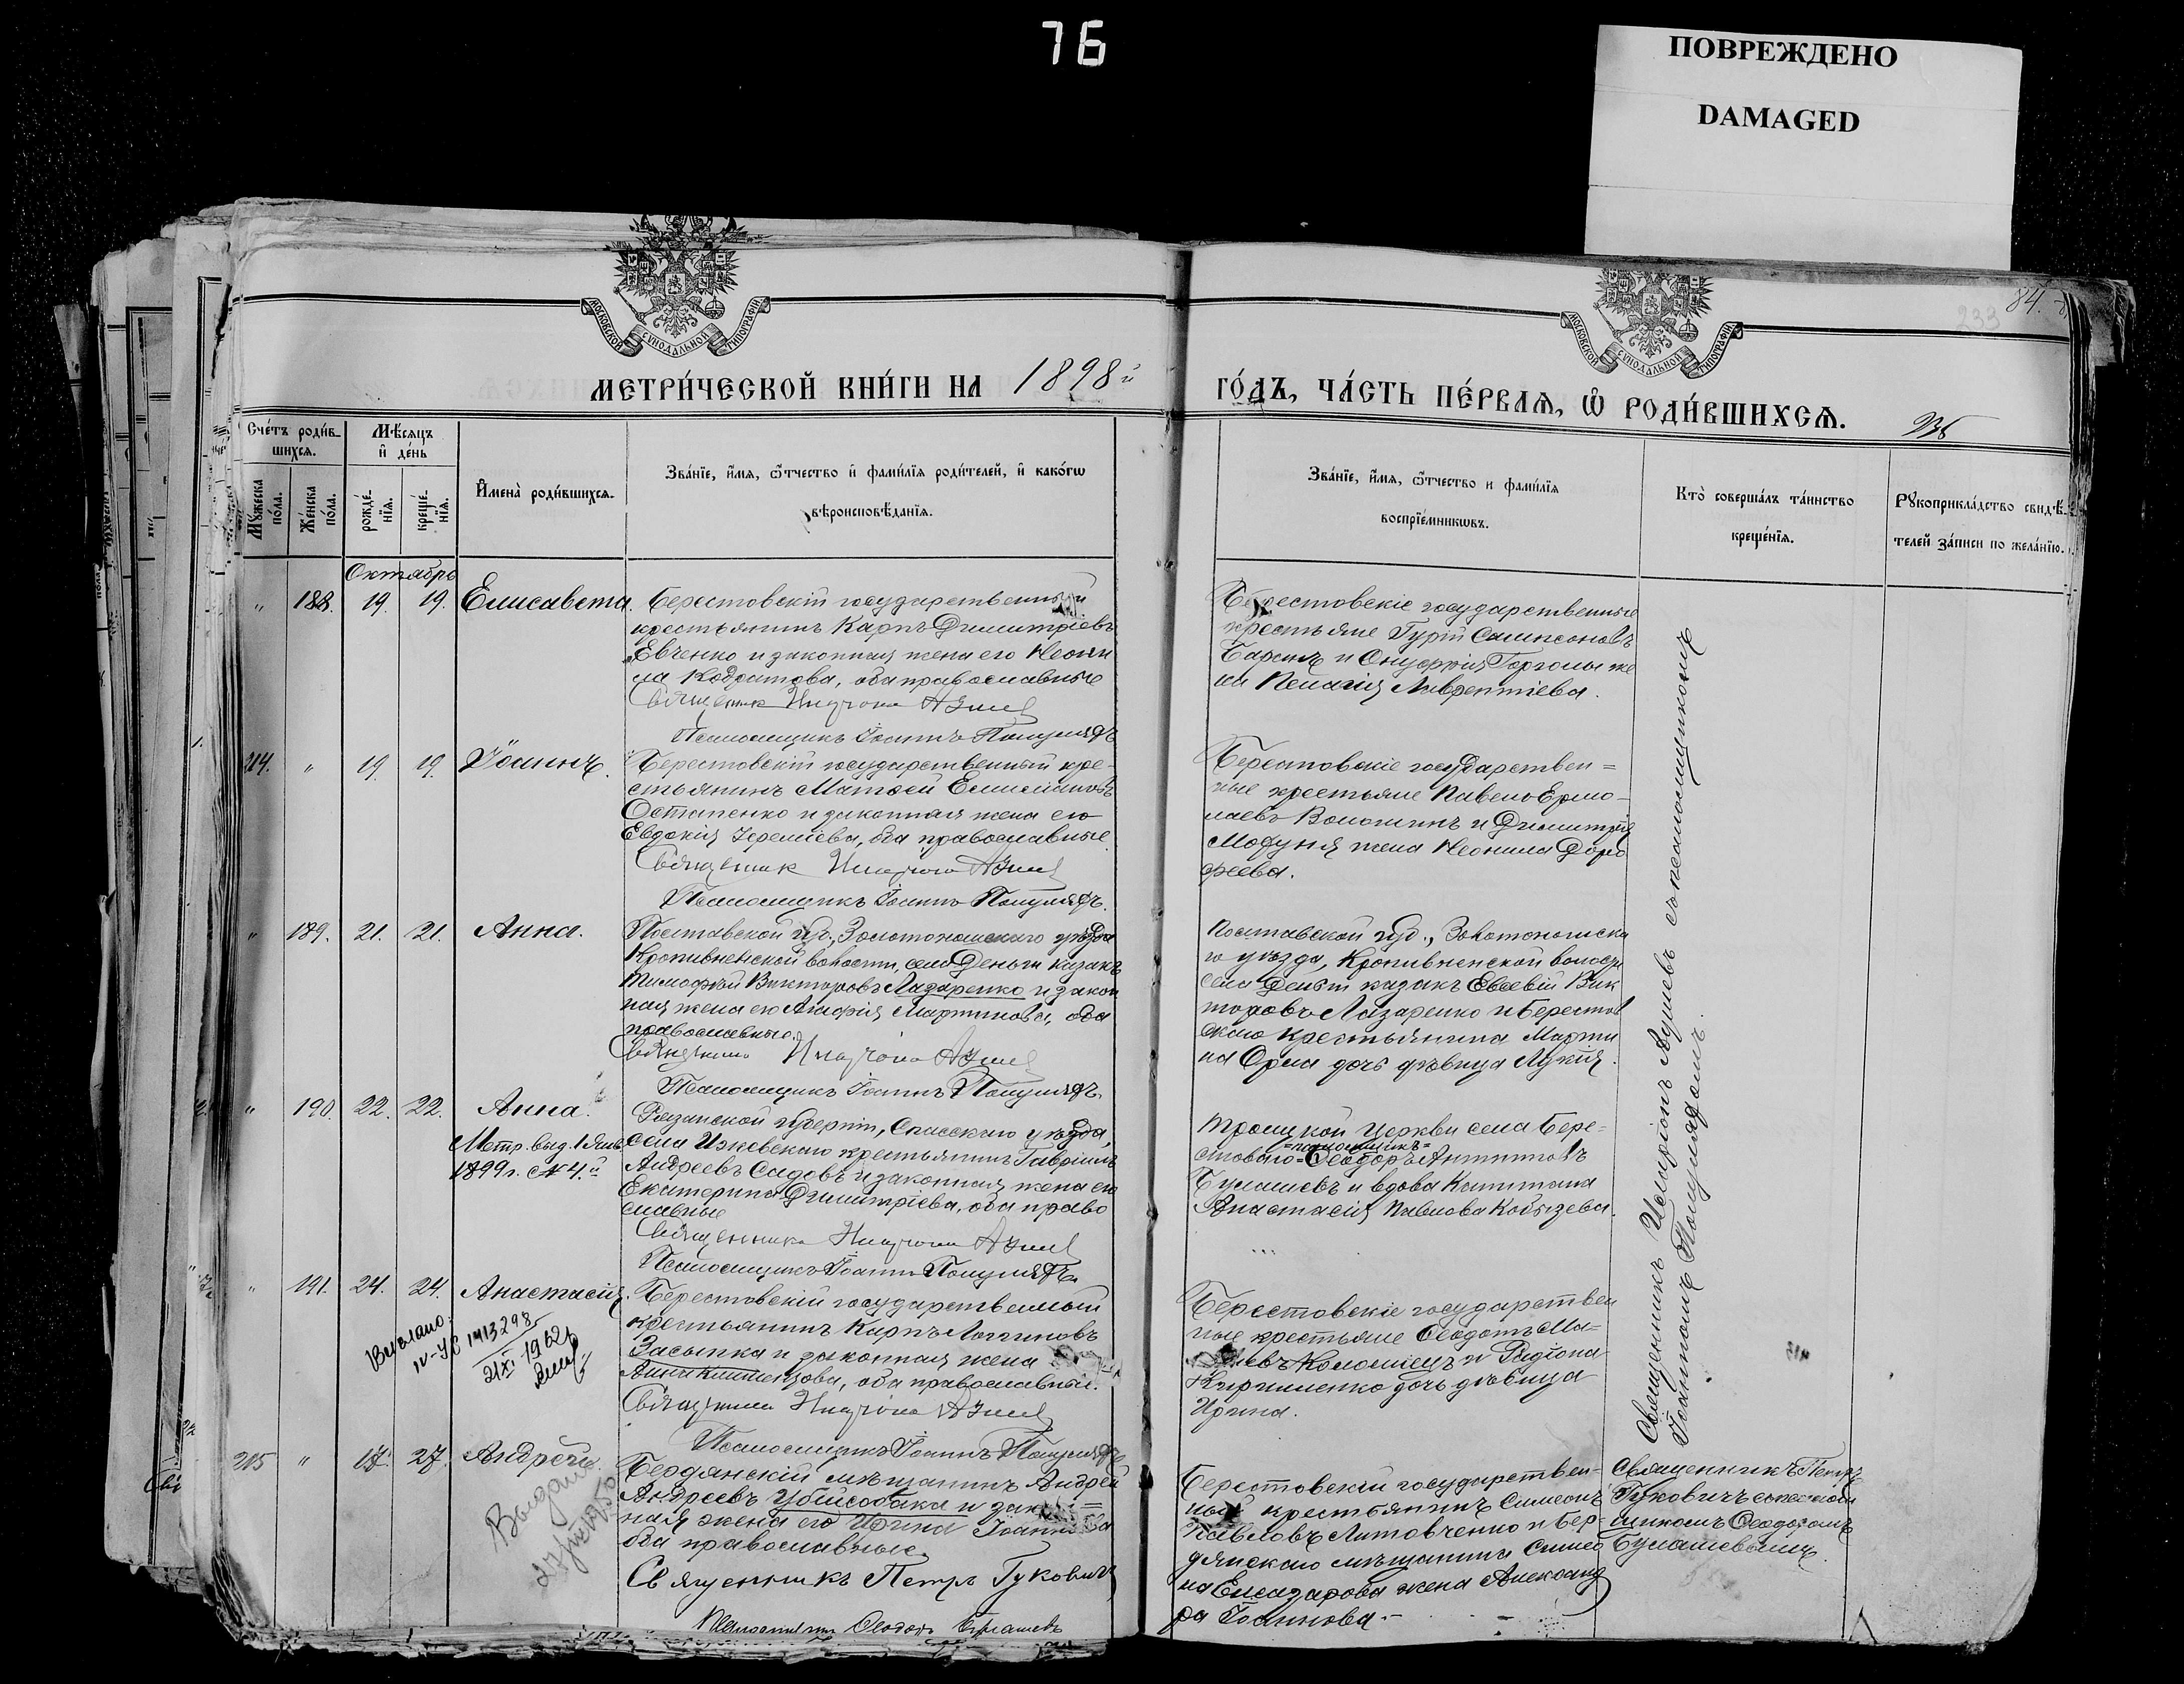 76
ПОВРЕЖДЕНО
DAMAGED
МОСКОВСКОЙ СУНОДАЛЬНОЙ ТИПОГРАФІИ
МОСКОВСКОЙ СУНОДАЛЬНОЙ ТИПОГРАФІИ
84.
233
МЕТРИ́ЧЕСКОЙ КНИ́ГИ НА 1898й
ГО́ДЪ, ЧА́СТЬ ПЕ́РВАѦ, Ѽ РОДИ́ВШИХСѦ.
Сче́тъ роди́в-
шихсѧ.
Мѣ́сѧцъ
и҆ де́нь
Мꙋ́жеска
по́ла.
Же́нска
по́ла.
рожде́-
нїѧ.
креще́-
нїѧ.
И҆мена̀ роди́вшихсѧ.
Зва́нїе, и҆́мѧ, ѻ҆́тчество и҆ фами́лїѧ роди́телей, и҆ како́гѡ
вѣроисповѣ́данїѧ.
Зва́нїе, и҆́мѧ, ѻ҆́тчество и фами́лїѧ
воспрїе́мникѡвъ.
Кто̀ соверша́лъ та́инство
креще́нїѧ.
Рꙋкоприкла́дство свидѣ́-
телей за́писи по жела́нїю.
Октябрь
" 188. 19. 19. Елисавета.
Берестовскій государственный
крестьянинъ Карпъ Димитріевъ
Евченко и законная жена его Неони
ла Кодратова, оба православные
Священникъ Иларіонъ Ашиев
Псаломщикъ Іоаннъ Полулядъ
Берестовскіе государственные
крестьяне Гурій Самсоновъ
и Онуфрія Горголы же
на Пелагія Лаврентіева.
214. " 19. 19. Іоаннъ.
Берестовскій государственный кре-
стьянинъ Матѳей
Остапенко и законная жена его
Евдокія Іереміева, оба православные.
Священникъ Иларіонъ Ашиев
Псаломщикъ Іоаннъ Полулядъ.
Берестовскіе государствен=
ные крестьяне Павелъ Ермо-
лаевъ Волошинъ и Димитрія
жена Неонила Доро
феева.
" 189. 21. 21. Анна.
Полтавской губ., Золотоношскаго уѣзда
Кропивненской волости, села Деньги казакъ
Тимофей Викторовъ Лазаренко и закон
ная жена его Агафія Мартинова, оба
православные.
Священникъ Иларіонъ Ашиев
Псаломщикъ Іоаннъ Полулядъ.
Полтавской губ., Золотоношска
го уѣзда, Кропивненской волости
села Деньги казакъ Евсевій Вик
торовъ Лазаренко и Берестов
скаго крестьянина Марти
на Орла дочь дѣвица Лукія.
" 190. 22. 22. Анна.
Метр. выд. 1 Янв.
1899 г. № 4.й
Рязанской губерніи, Спасскаго уѣзда,
села Ижевскаго крестьянинъ Гавріилъ
Андреевъ Садовъ и законная жена его
Екатерина Димитріева, оба право
славные
Священникъ Иларіонъ Ашиев
Псаломщикъ Іоаннъ Полулядъ.
Троицкой Церкви села Бере=
=псаломщикъ=
стоваго=Ѳеодоръ Антиповъ
Булашевъ и вдова Капитана
Анастасія Павлова Кобызева.
" 191. 24. 24. Анастасія.
Выслано.
IV-УС 1413298
21/XI 1962
Берестовскій государственный
крестьянинъ Карпъ Логгиновъ
Засыпка и законная жена
Анна Климентова, оба православные.
Священникъ Иларіонъ Ашиев
Псаломщикъ Іоаннъ Полулядъ
Берестовскіе государствен
ные крестьяне Ѳеодотъ
Коломіецъ и Родіона
Кириленко дочь дѣвица
Ирина.
Священникъ Иларіонъ Ашиевъ съ псаломщикомъ
Іоанномъ Полулядомъ.
215 " 17. 27. Андрей.
Выдано
Бердянскій мѣщанинъ Андрей
Андреевъ Убійсобака и закон=
ная жена его Ирина Іоаннова
оба православные.
Священникъ Петръ Гуковичъ
Псаломщикъ Ѳеодоръ Булашевъ
Берестовскій государствен=
ный крестьянинъ Симеонъ
Павловъ Литовченко и Бер-
дянскаго мѣщанина Симео
на Елеазарова жена Александ
ра Іоаннова.-
Священникъ Петръ
Гуковичъ съ псалом
щикомъ Ѳеодоромъ
Булашевымъ.